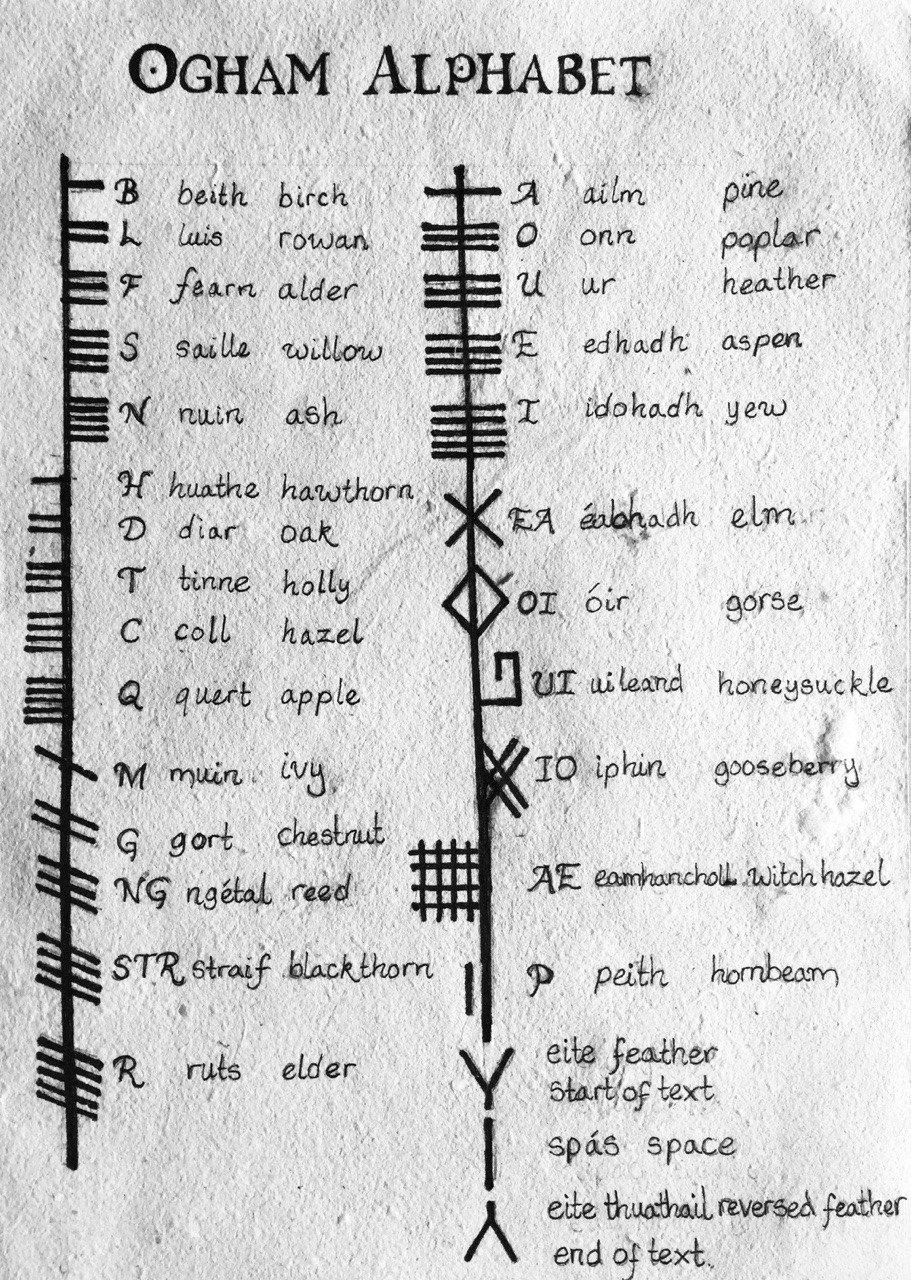 OGHAM ALPHABET
B beith birch
L luis rowan
F fearn alder
S saille willow
N nuin ash
H huathe hawthorn
D diar oak
T tinne holly
C coll hazel
Q quert apple
M muin ivy
G gort chestnut
NG ngétal reed
STR straif blackthorn
R ruts elder
A ailm pine
O onn poplar
U ur heather
E edhadh aspen
I idohadh yew
EA éabhadh elm
OI óir gorse
UI uileand honeysuckle
IO iphin gooseberry
AE eamhancholl witch hazel
P peith hornbeam
eite feather
start of text
spás space
eite thuathail reversed feather
end of text.